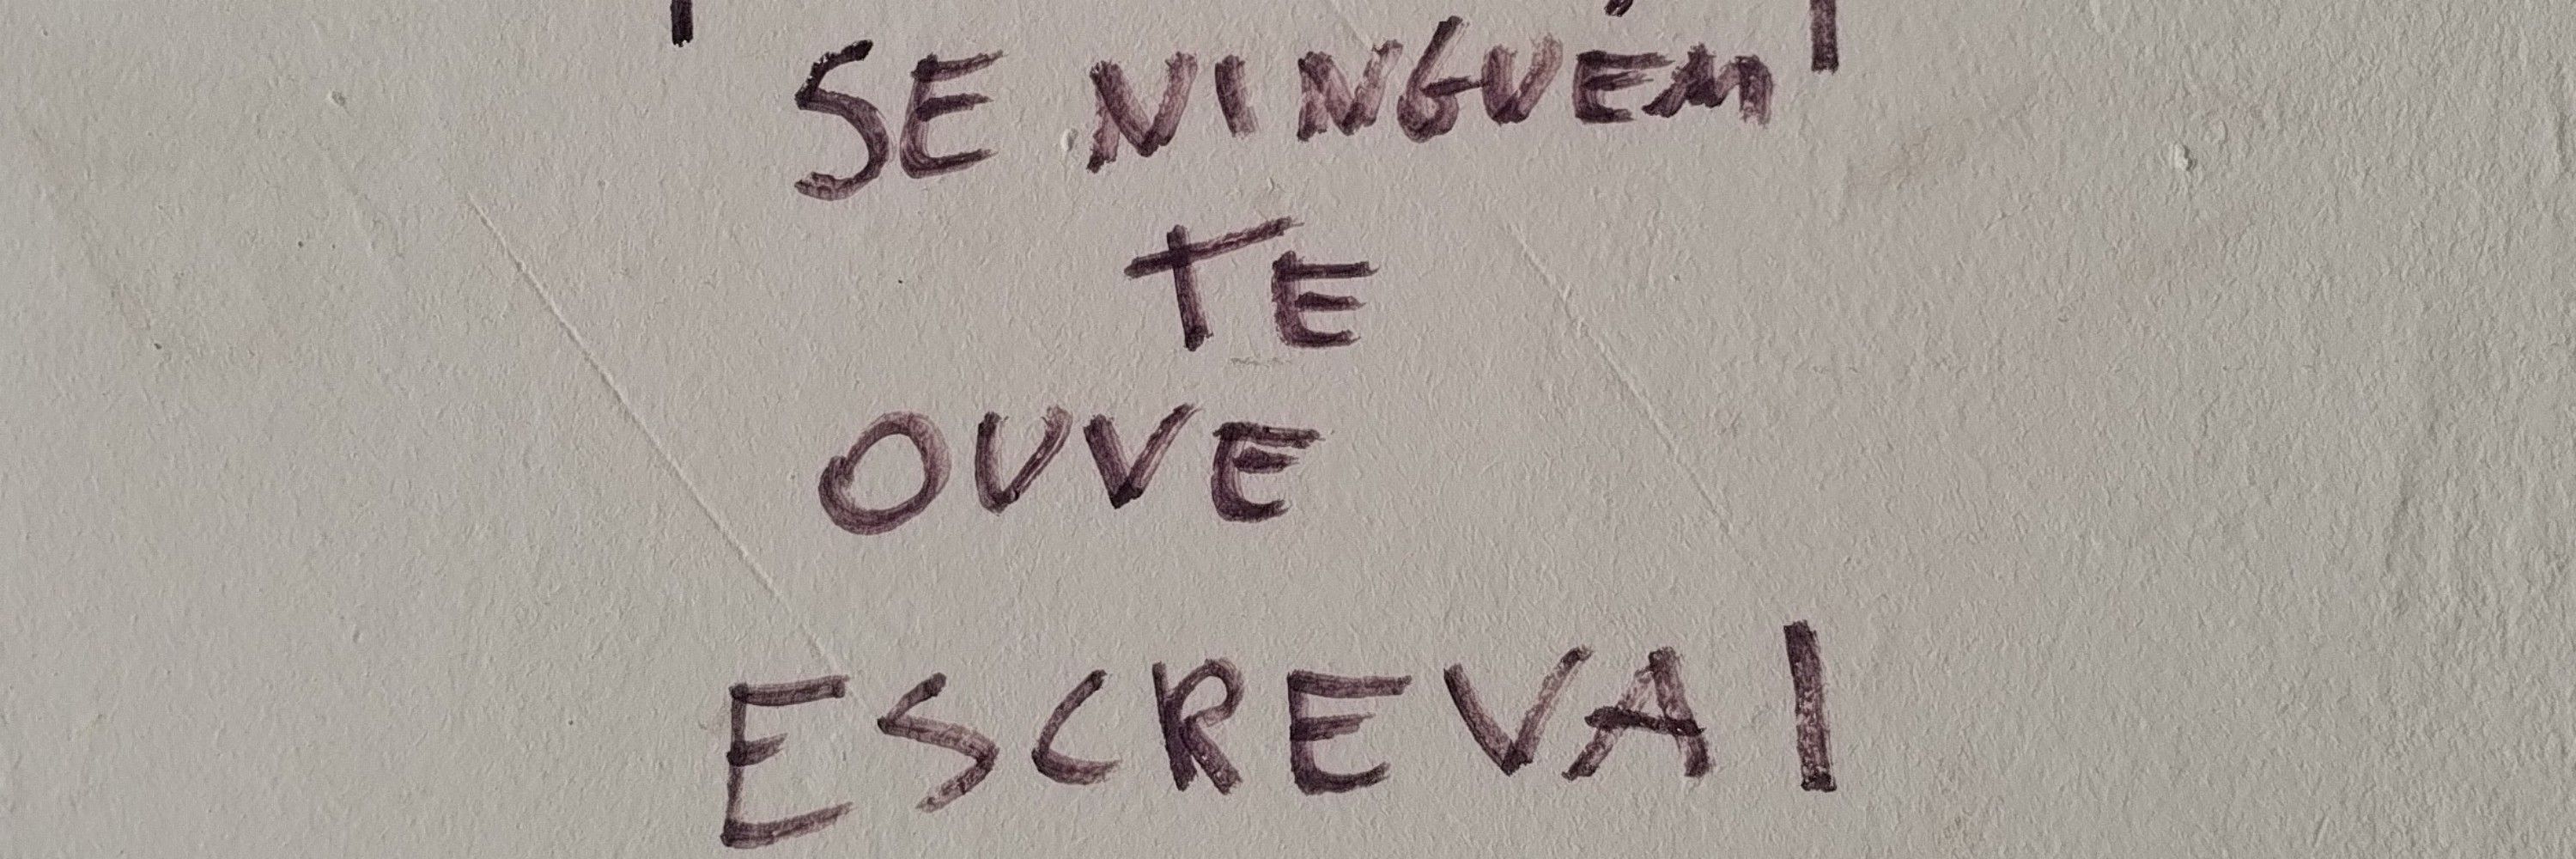 SE NINGUÉM
TE
OUVE
ESCREVA!